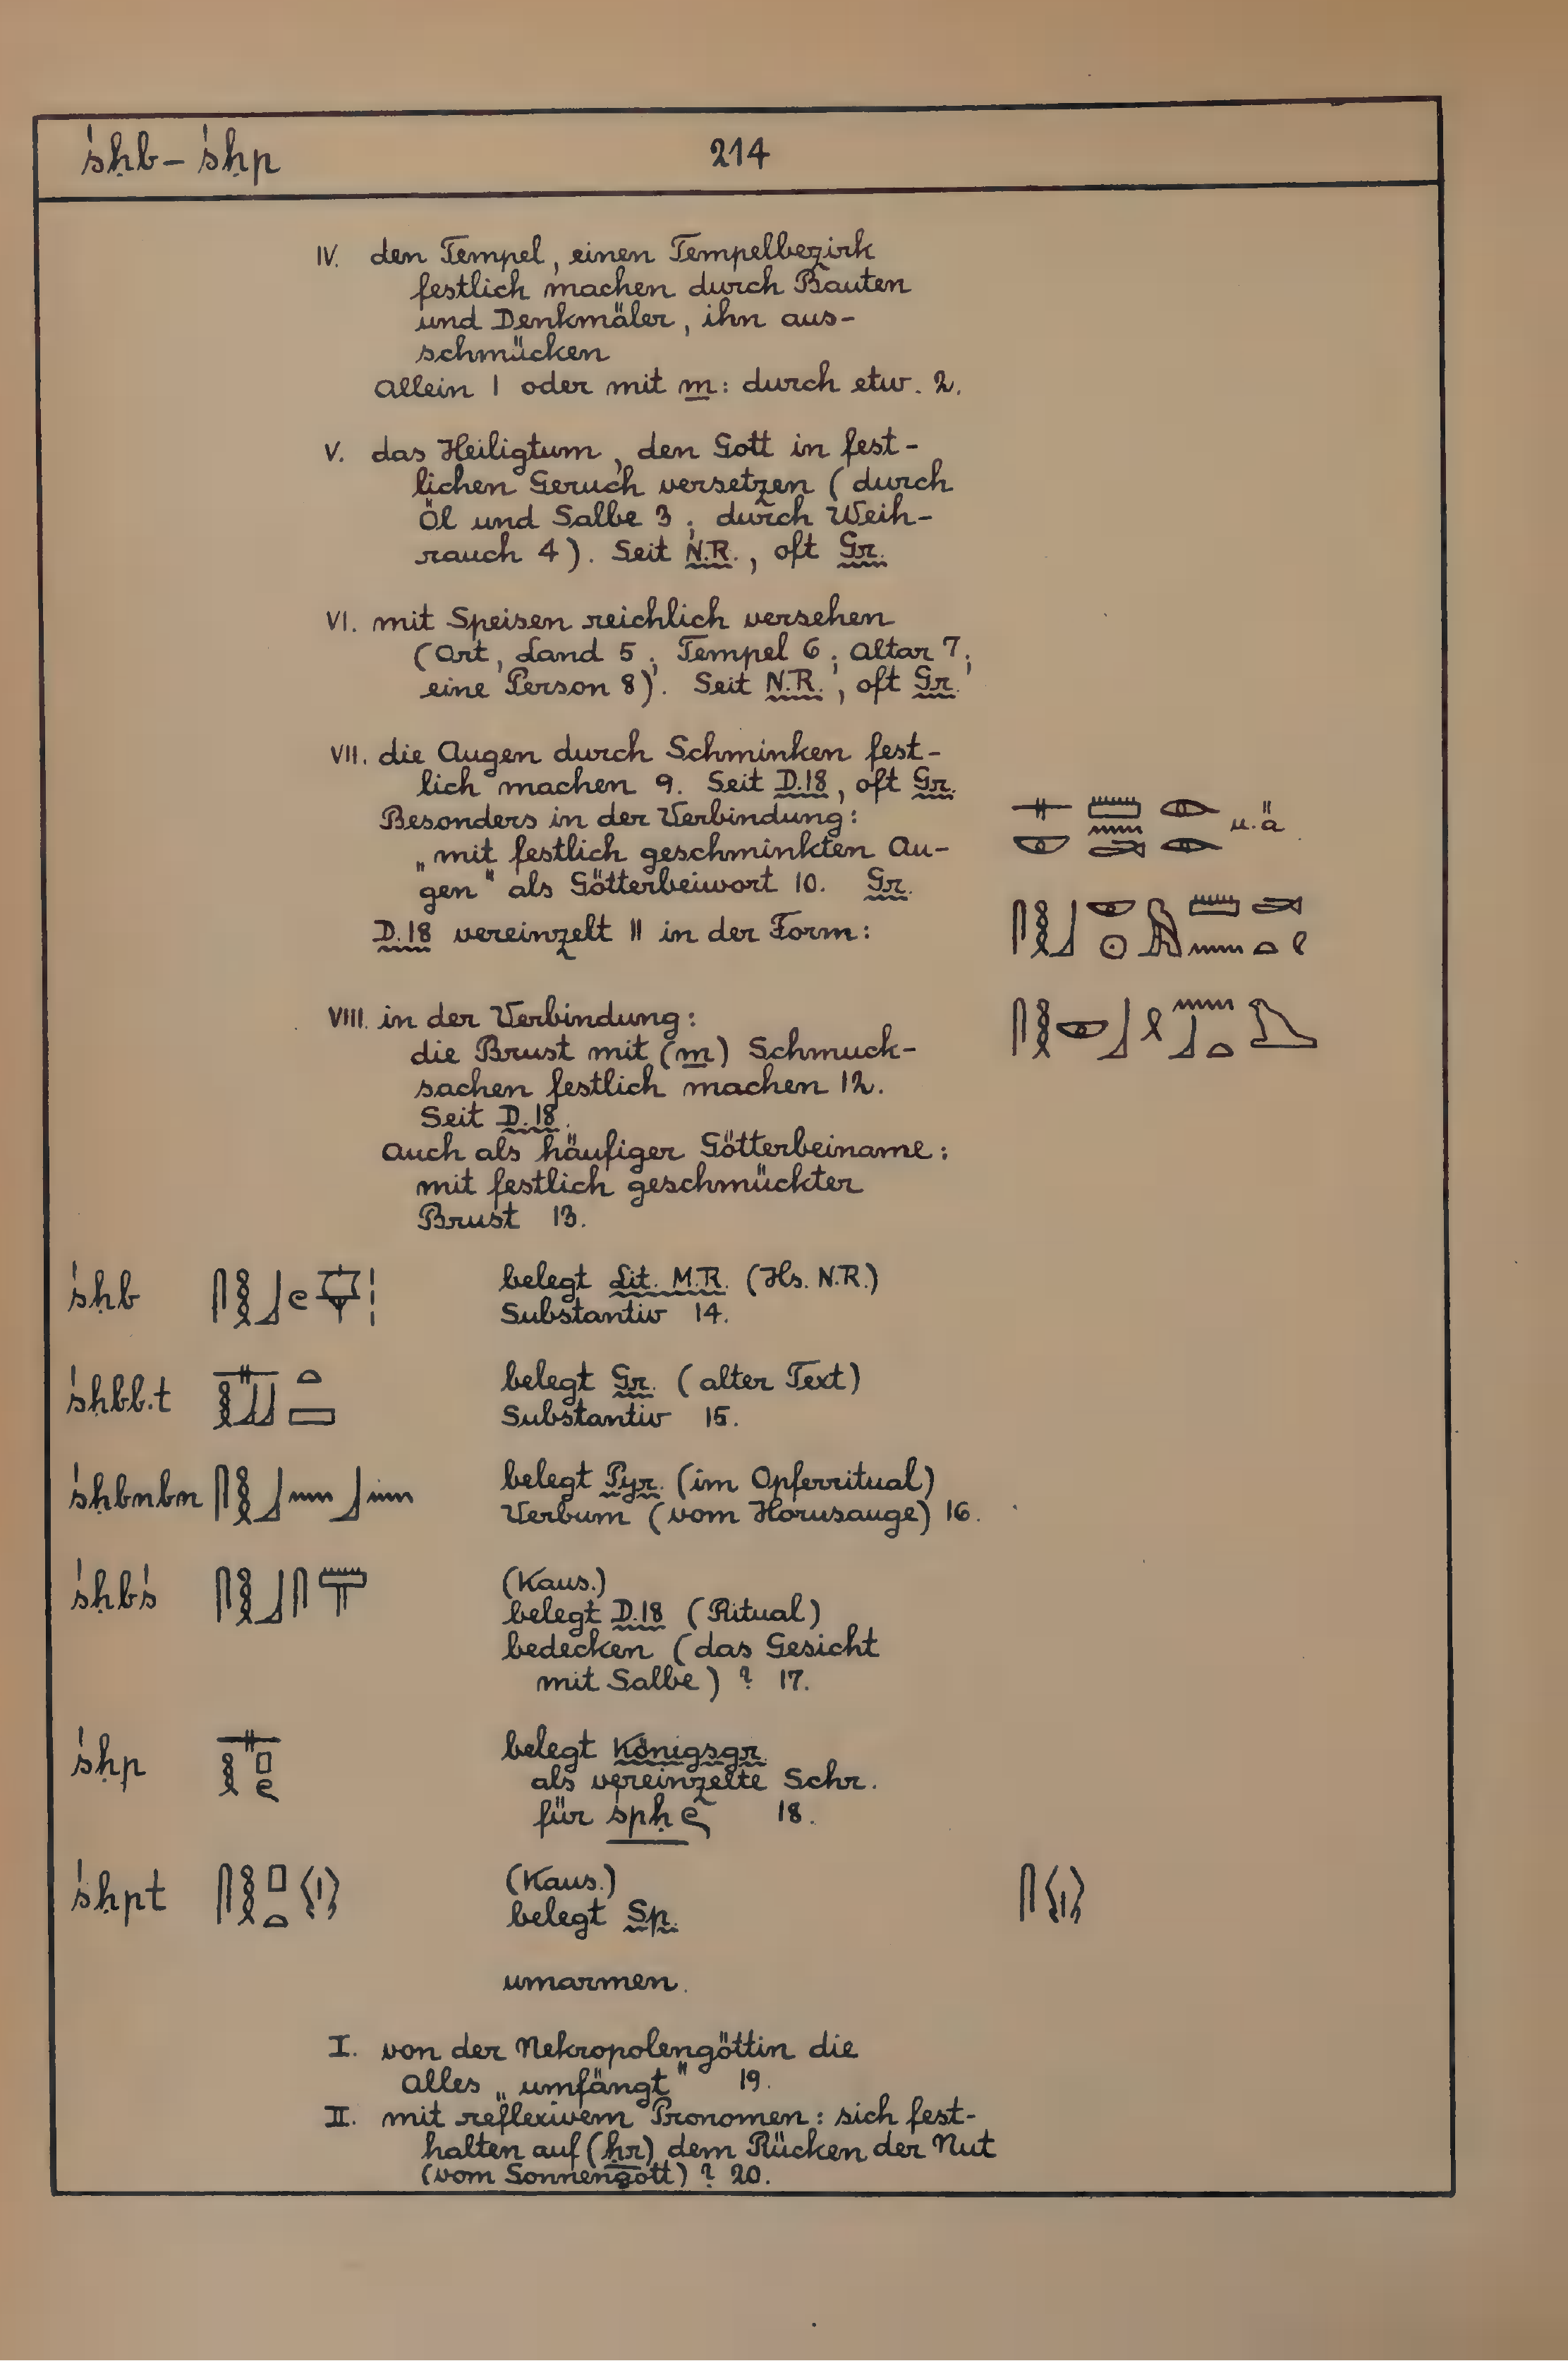 śḥb – śḥp 214
IV. den Tempel, einen Tempelbezirk
festlich machen durch Bauten
und Denkmäler, ihn aus-
schmücken
Allein 1 oder mit m: durch etw. 2.
V. das Heiligtum, den Gott in fest-
lichen Geruch versetzen (durch
Öl und Salbe 3; durch Weih-
rauch 4). Seit N.R., oft Gr.
VI. mit Speisen reichlich versehen
(Ort, Land 5; Tempel 6; Altar 7;
eine Person 8). Seit N.R., oft Gr.
VII. die Augen durch Schminken fest-
lich machen 9. Seit D.18, oft Gr.
Besonders in der Verbindung:
„mit festlich geschminkten Au- u.ä.
gen" als Götterbeiwort 10. Gr.
D.18 vereinzelt 11 in der Form:
VIII. in der Verbindung:
die Brust mit (m) Schmuck-
sachen festlich machen 12.
Seit D.18.
Auch als häufiger Götterbeiname:
mit festlich geschmückter
Brust 13.
śḥb belegt Lit. M.R. (Hs. N.R.)
Substantiv 14.
śḥbb.t belegt Gr. (alter Text)
Substantiv 15.
śḥbnbn belegt Pyr. (im Opferritual)
Verbum (vom Horusauge) 16.
śḥbś (Kaus.)
belegt D.18 (Ritual)
bedecken (das Gesicht
mit Salbe) ? 17.
śḥp belegt Königsgr.
als vereinzelte Schr.
für śpḥ 18.
śḥpt (Kaus.)
belegt Sp.
umarmen.
I. von der Nekropolengöttin die
alles „umfängt" 19.
II. mit reflexivem Pronomen: sich fest-
halten auf (ḥr) dem Rücken der Nut
(vom Sonnengott) ? 20.